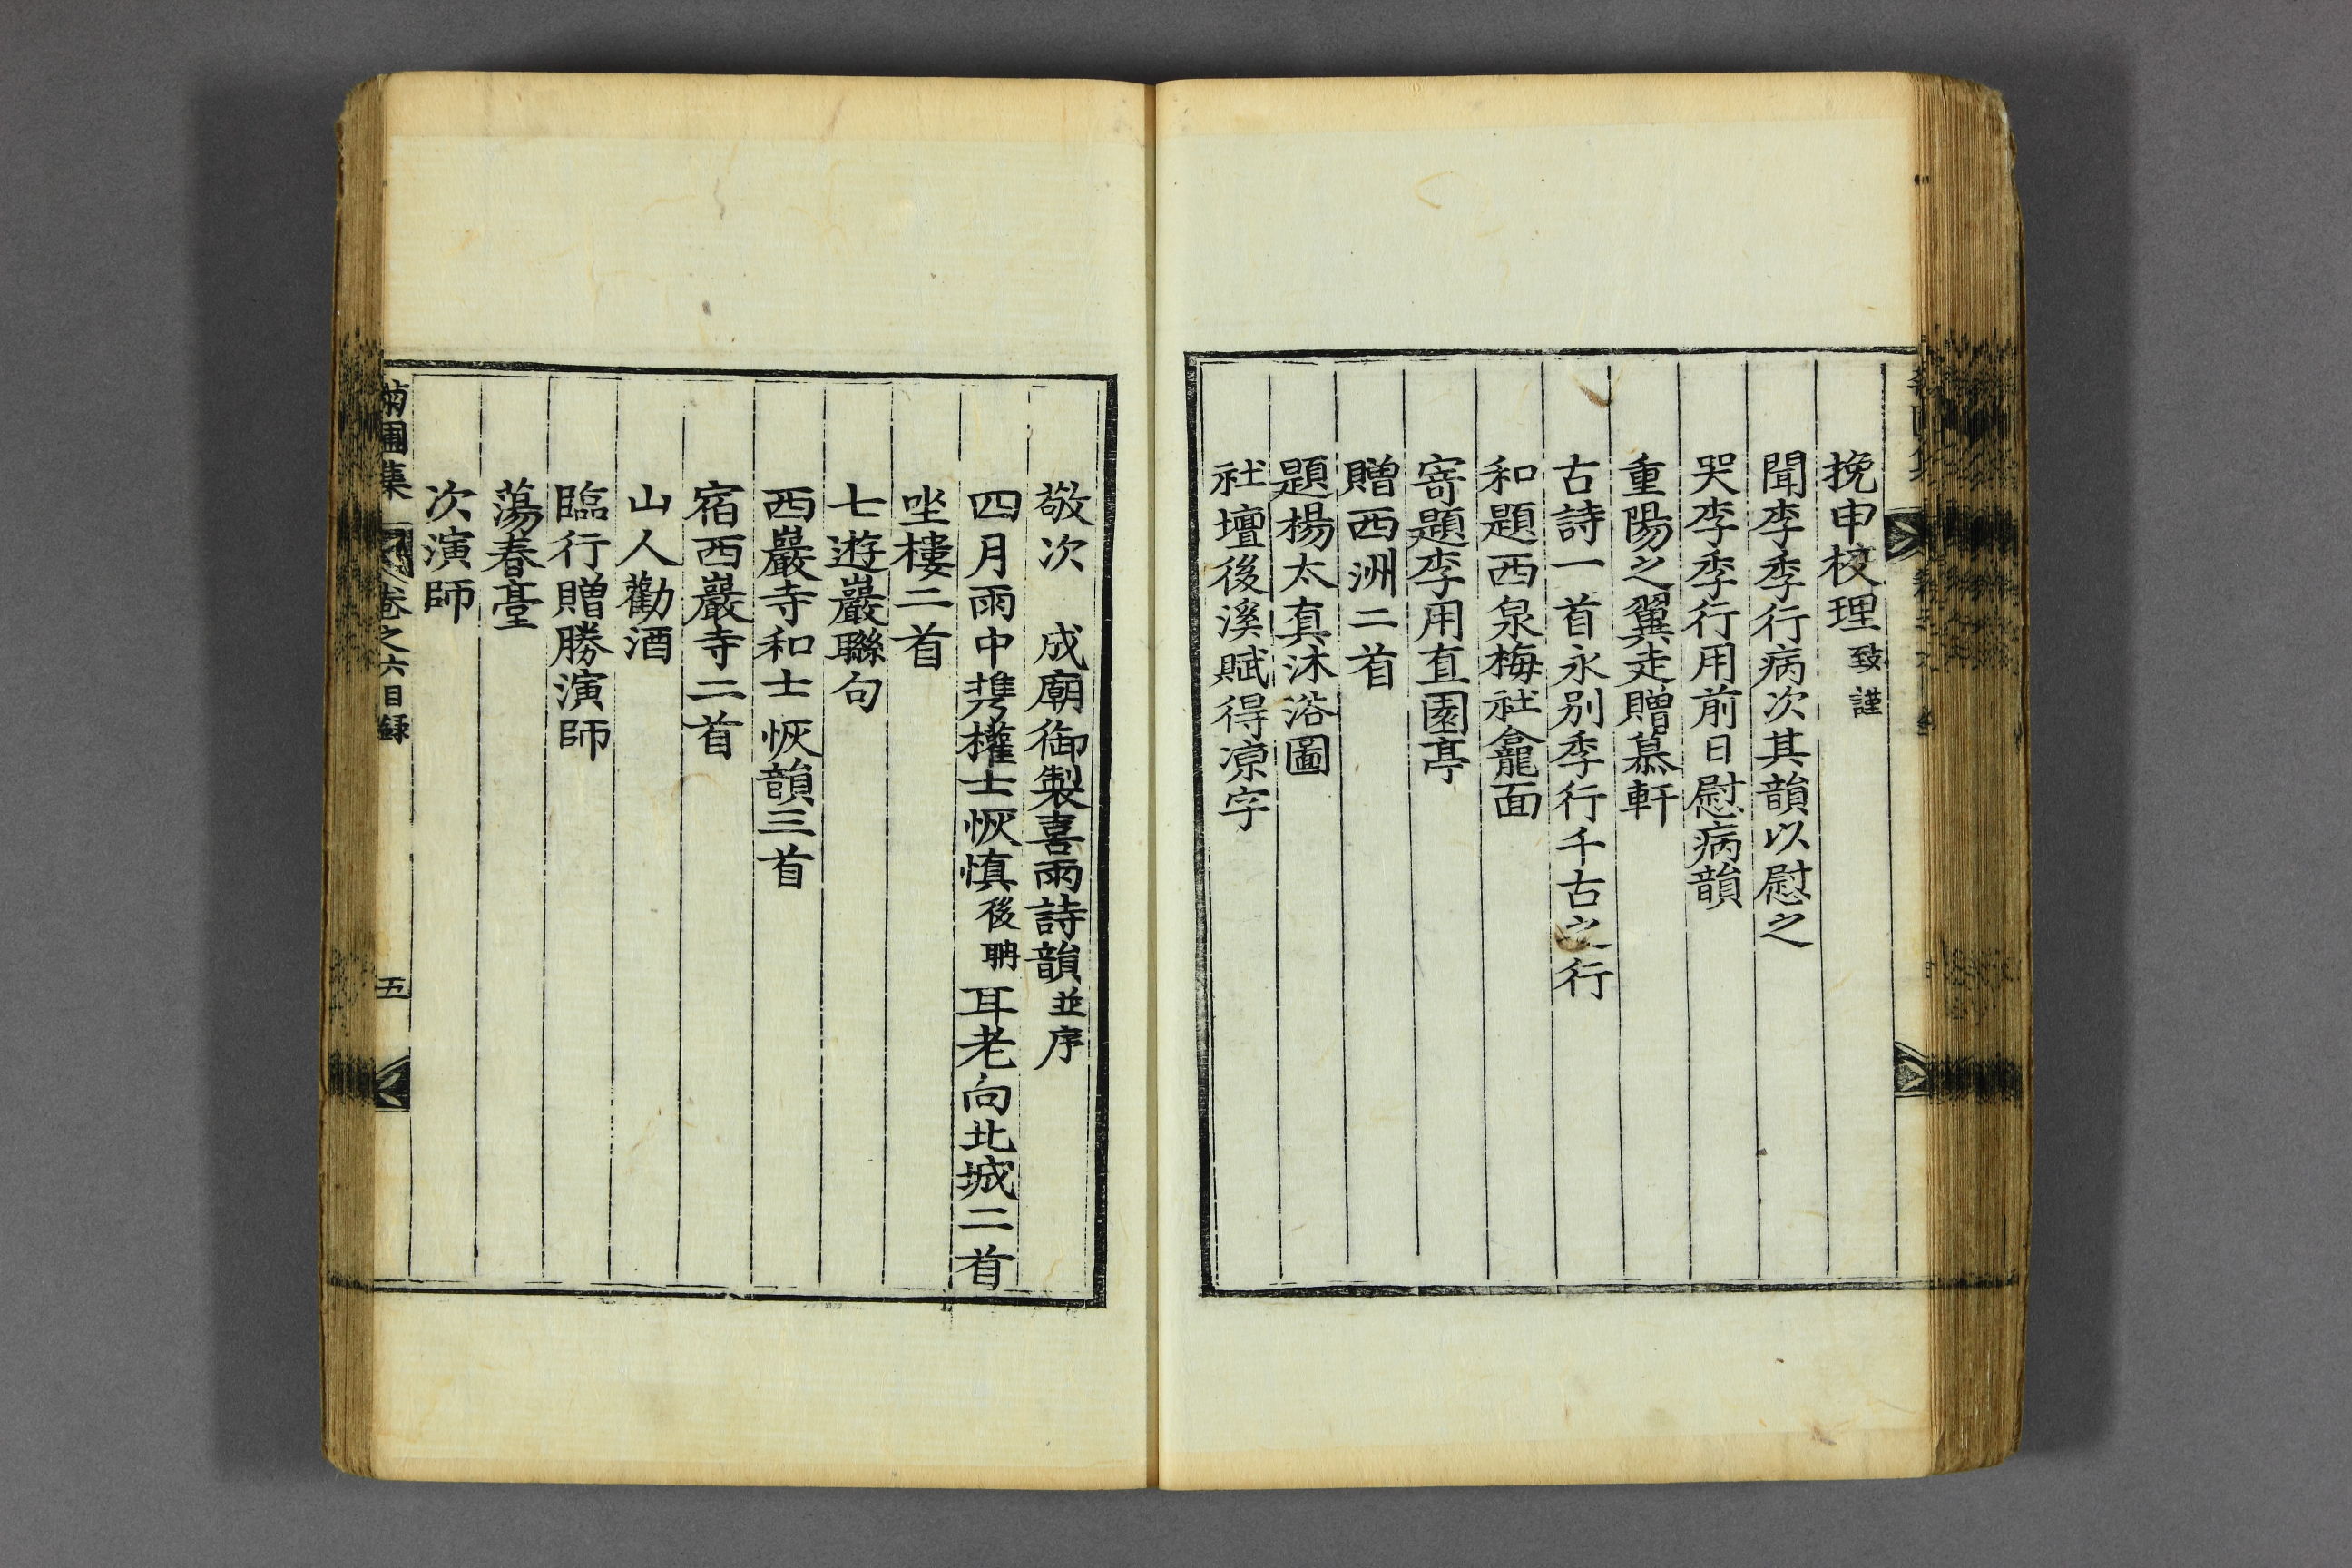 挽申校理致謹
聞李季行病次其韻以慰之
哭李季行用前日慰病韻
重陽之翼走贈慕軒
古詩一首永別季行千古之行
和題西泉梅社龕面
寄題李用直園亭
贈西洲二首
題楊太真沐浴圖
社壇後溪賦得凉字
敬次　成廟御製喜雨詩韻並序
四月雨中携權士恢愼後聃耳老向北城二首
坐樓二首
七遊巖聯句
西巖寺和士恢韻三首
宿西巖寺二首
山人勸酒
臨行贈勝演師
蕩春臺
次演師
菊圃集　卷之六目録　五